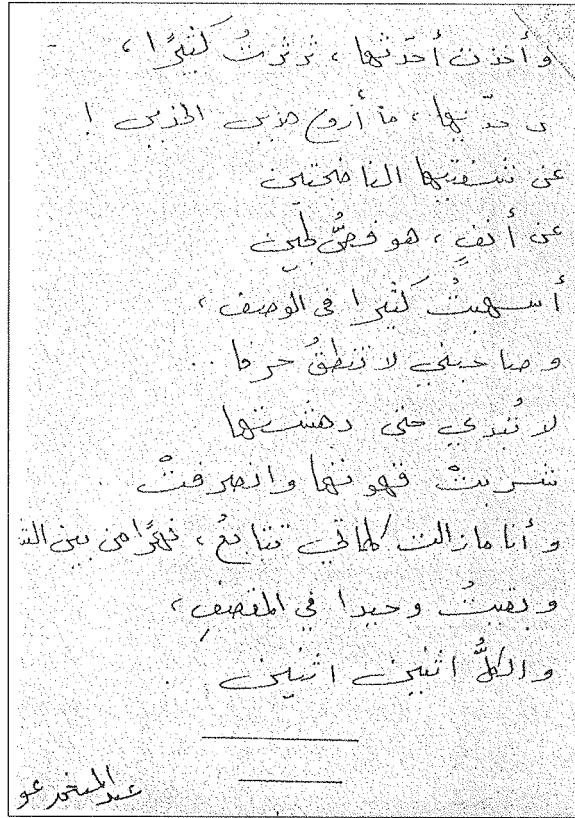 وأخذت أحدّثها، ثرثرتُ كثيرًا،
خدّيها، ما أروع هذين الخدين !
عن شفتيها الناضجتين
عن أنفٍ، هو فصُّ لجين
أسهبتُ كثيرا في الوصف،
وصاحبتي لا تنطقُ حرفا ..
لا تُبدي حتى دهشتها
شربتْ قهوتها وانصرفتْ
وأنا مازالت كلماتي تتتابعُ، نهرًا من بين
وبقيتُ وحيدا في المقصفِ،
والكلُّ اثنين اثنين
عبد المنعم عو